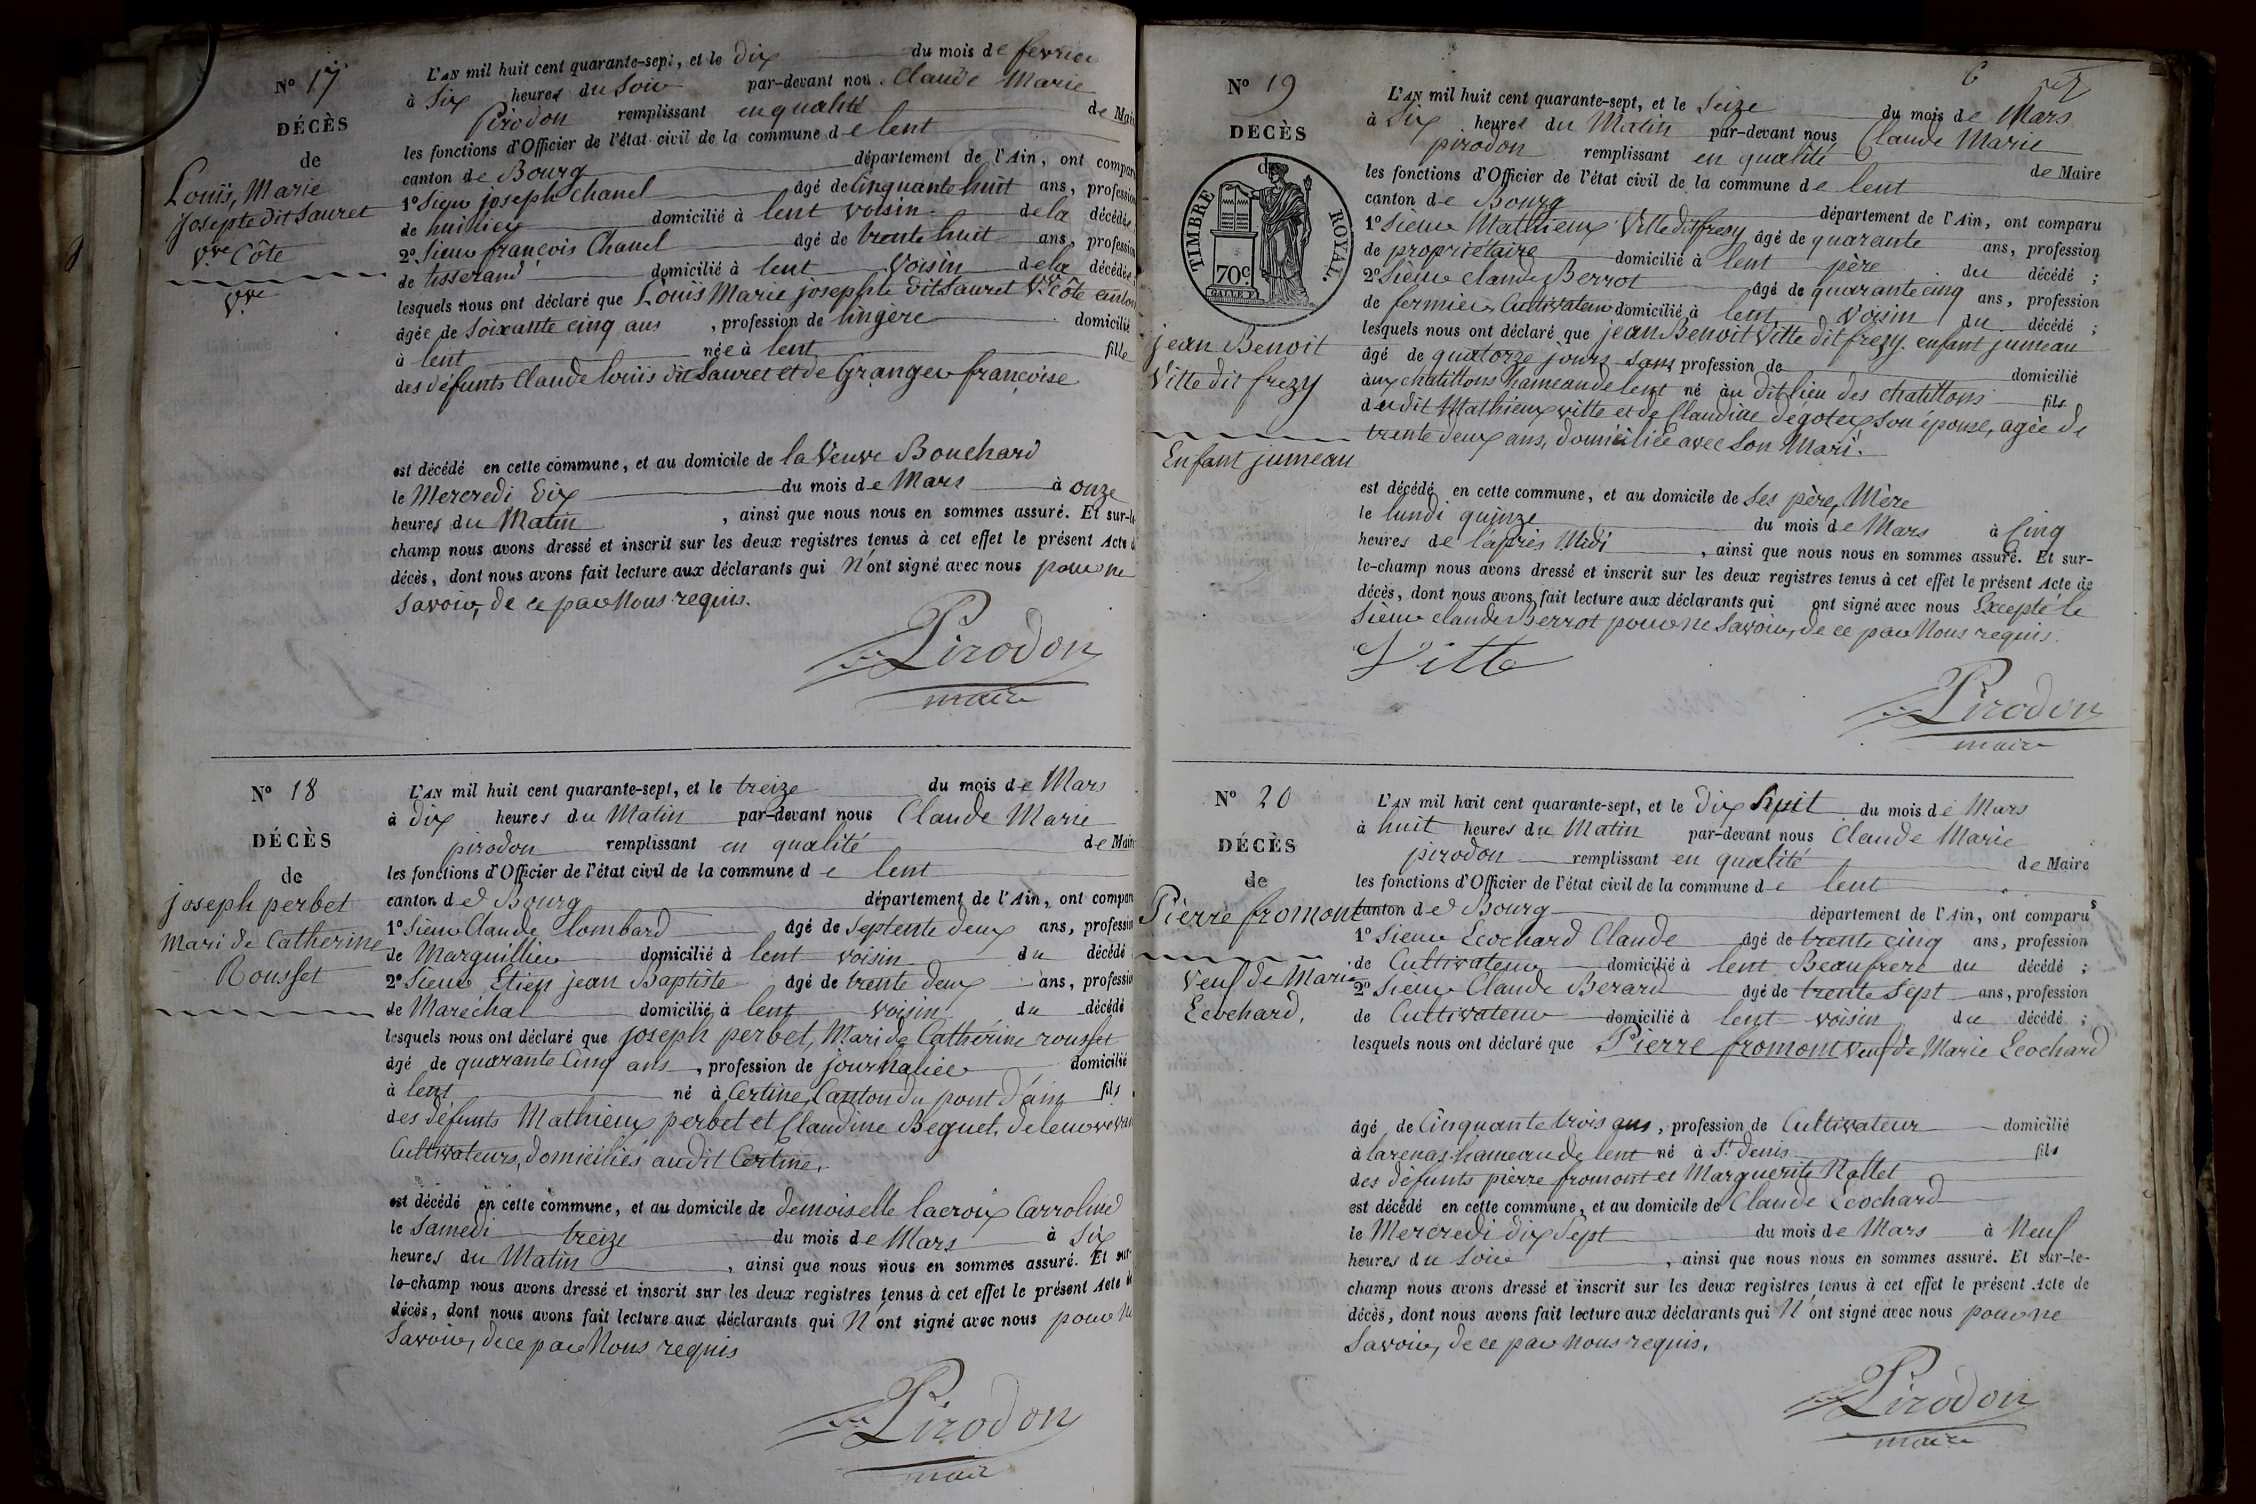 N° 17
DÉCÈS
de
Louis, Marie
Josepte dit Sauret
Vve Côte
Vve
L'AN mil huit cent quarante-sept, et le dix du mois de fevrier
à Six heures du Soir par-devant nous Claude Marie
Pirodon remplissant en qualité de Maire
les fonctions d'Officier de l'état civil de la commune de lent
canton de Bourg département de l'Ain, ont compar
1° Sieur joseph Chanel âgé de Cinquante huit ans, profession
de huilier domicilié à lent voisin de la décédée
2° Sieur françois Chanel âgé de trente huit ans, profession
de tisserand domicilié à lent Voisin de la décédée
lesquels nous ont déclaré que Louis Marie josephte dit Sauret Vve Côte
âgée de Soixante cinq ans, profession de lingère domicilié
à lent née à lent fille
des défunts Claude louis dit Sauret et de Granger françoise
est décédé en cette commune, et au domicile de la Veuve Bouchard
le Mercredi Dix du mois de Mars à onze
heures du Matin, ainsi que nous nous en sommes assuré. Et sur-le
champ nous avons dressé et inscrit sur les deux registres tenus à cet effet le présent Acte d
décès, dont nous avons fait lecture aux déclarants qui N'ont signé avec nous pour ne
Savoir, de ce par Nous requis.
Pirodon
maire
N° 18
DÉCÈS
de
joseph perbet
Mari de Catherine
Rousset
L'AN mil huit cent quarante-sept, et le treize du mois de Mars
à Dix heures du Matin par-devant nous Claude Marie
pirodon remplissant en qualité de Maire
les fonctions d'Officier de l'état civil de la commune de lent
canton de Bourg département de l'Ain, ont compar
1° Sieur Claude lombard âgé de Septente deux ans, profession
de Marguillier domicilié à lent voisin du décédé
2° Sieur Etien jean Baptiste âgé de trente deux ans, profession
de Maréchal domicilié à lent voisin du décédé
lesquels nous ont déclaré que joseph perbet, Mari de Catherine rousset
âgé de quarante Cinq ans, profession de journalier domicilié
à lent né à Certine, Canton du pont d'ain fils
des défunts Mathieux perbet et Claudine Beguet, de leur vivan
Cultivateurs, domiciliés audit Certine.
est décédé en cette commune, et au domicile de demoiselle lacroix Carroline
le Samedi treize du mois de Mars à Six
heures du Matin, ainsi que nous nous en sommes assuré. Et sur
le-champ nous avons dressé et inscrit sur les deux registres tenus à cet effet le présent Acte de
décès, dont nous avons fait lecture aux déclarants qui N'ont signé avec nous pour Ne
Savoir, de ce par Nous requis
Pirodon
mair
6
N° 19
DECÈS
de
TIMBRE ROYAL.
70c
jean Benoit
Vitte dit frezy
Enfant jumeau
L'AN mil huit cent quarante-sept, et le Seize du mois de Mars
à Six heures du Matin par-devant nous Claude Marie
pirodon remplissant en qualité de Maire
les fonctions d'Officier de l'état civil de la commune de lent
canton de Bourg département de l'Ain, ont comparu
1° Sieur Mathieux Vitte dit frezy âgé de quarante ans, profession
de propriétaire domicilié à lent père du décédé ;
2° Sieur claude Berrot âgé de quarante cinq ans, profession
de fermier Cultivateur domicilié à lent Voisin du décédé ;
lesquels nous ont déclaré que jean Benoit Vitte dit frezy enfant jumeau
âgé de quatorze jours Sans profession de domicilié
aux chatittons hameau de lent né au dit lieu des chatittons fils
du dit Mathieux vitte et de Claudine degoteux son épouse, agée de
trente deux ans, domiciliée avec Son Mari.
est décédé en cette commune, et au domicile de Ses père, Mère
le lundi quinze du mois de Mars à Cinq
heures de l'après Midi, ainsi que nous nous en sommes assuré. Et sur-
le-champ nous avons dressé et inscrit sur les deux registres tenus à cet effet le présent Acte de
décès, dont nous avons fait lecture aux déclarants qui ont signé avec nous Excepté le
Sieur claude Berrot pour ne Savoir, de ce par Nous requis.
Vitte
Pirodon
maire
N° 20
DÉCÈS
de
Pierre fromont
Veuf de Marie
Leochard,
L'AN mil huit cent quarante-sept, et le Dix huit du mois de Mars
à huit heures du Matin par-devant nous Claude Marie
pirodon remplissant en qualité de Maire
les fonctions d'Officier de l'état civil de la commune de lent
canton de Bourg département de l'Ain, ont comparus
1° Sieur Leochard Claude âgé de trente cinq ans, profession
de Cultivateur domicilié à lent Beaufrere du décédé ;
2° Sieur Claude Berard âgé de trente Sept ans, profession
de Cultivateur domicilié à lent voisin du décédé ;
lesquels nous ont déclaré que Pierre fromont veuf de Marie Leochard
âgé de Cinquante trois ans, profession de Cultivateur domicilié
à larenas hameau de lent né à St Denis fils
des défunts pierre fromont et Marguerite Nallet
est décédé en cette commune, et au domicile de Claude Leochard
le Mercredi dix Sept du mois de Mars à Neuf
heures du Soir, ainsi que nous nous en sommes assuré. Et sur-le-
champ nous avons dressé et inscrit sur les deux registres tenus à cet effet le présent Acte de
décès, dont nous avons fait lecture aux déclarants qui N'ont signé avec nous pour ne
Savoir, de ce par Nous requis.
Pirodon
maire